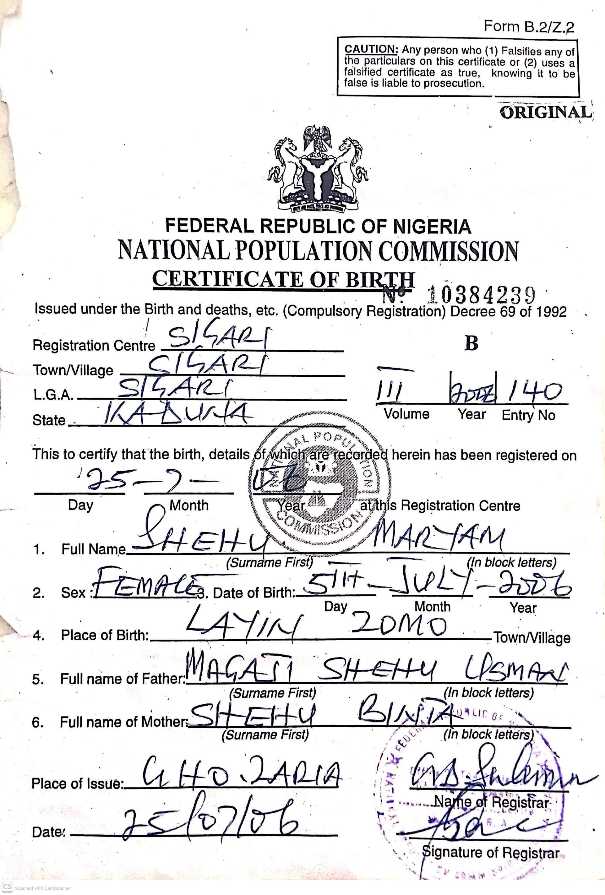 Form B.2/Z.2
CAUTION: Any person who (1) Falsifies any of
the particulars on this certificate or (2) uses a
falsified certificate as true, knowing it to be
false is liable to prosecution.
ORIGINAL
FEDERAL REPUBLIC OF NIGERIA
NATIONAL POPULATION COMMISSION
CERTIFICATE OF BIRTH
No 10384239
Issued under the Birth and deaths, etc. (Compulsory Registration) Decree 69 of 1992
Registration Centre SIGARI
B
Town/Village SIGARI
L.G.A. SIGARI
State KADUNA
III 2006 140
Volume Year Entry No
This to certify that the birth, details of which are recorded herein has been registered on
25 - 7 - 06
Day Month Year at this Registration Centre
NATIONAL POPULATION COMMISSION
1. Full Name SHEHU MARYAM
(Surname First) (In block letters)
2. Sex: FEMALE 3. Date of Birth: 5TH - JULY - 2006
Day Month Year
4. Place of Birth: LAYIN ZOMO Town/Village
5. Full name of Father: MAGAJI SHEHU USMAN
(Surname First) (In block letters)
6. Full name of Mother: SHEHU BINTA
(Surname First) (In block letters)
Place of Issue: GHO. ZARIA
Name of Registrar
Date: 25/07/06
Signature of Registrar